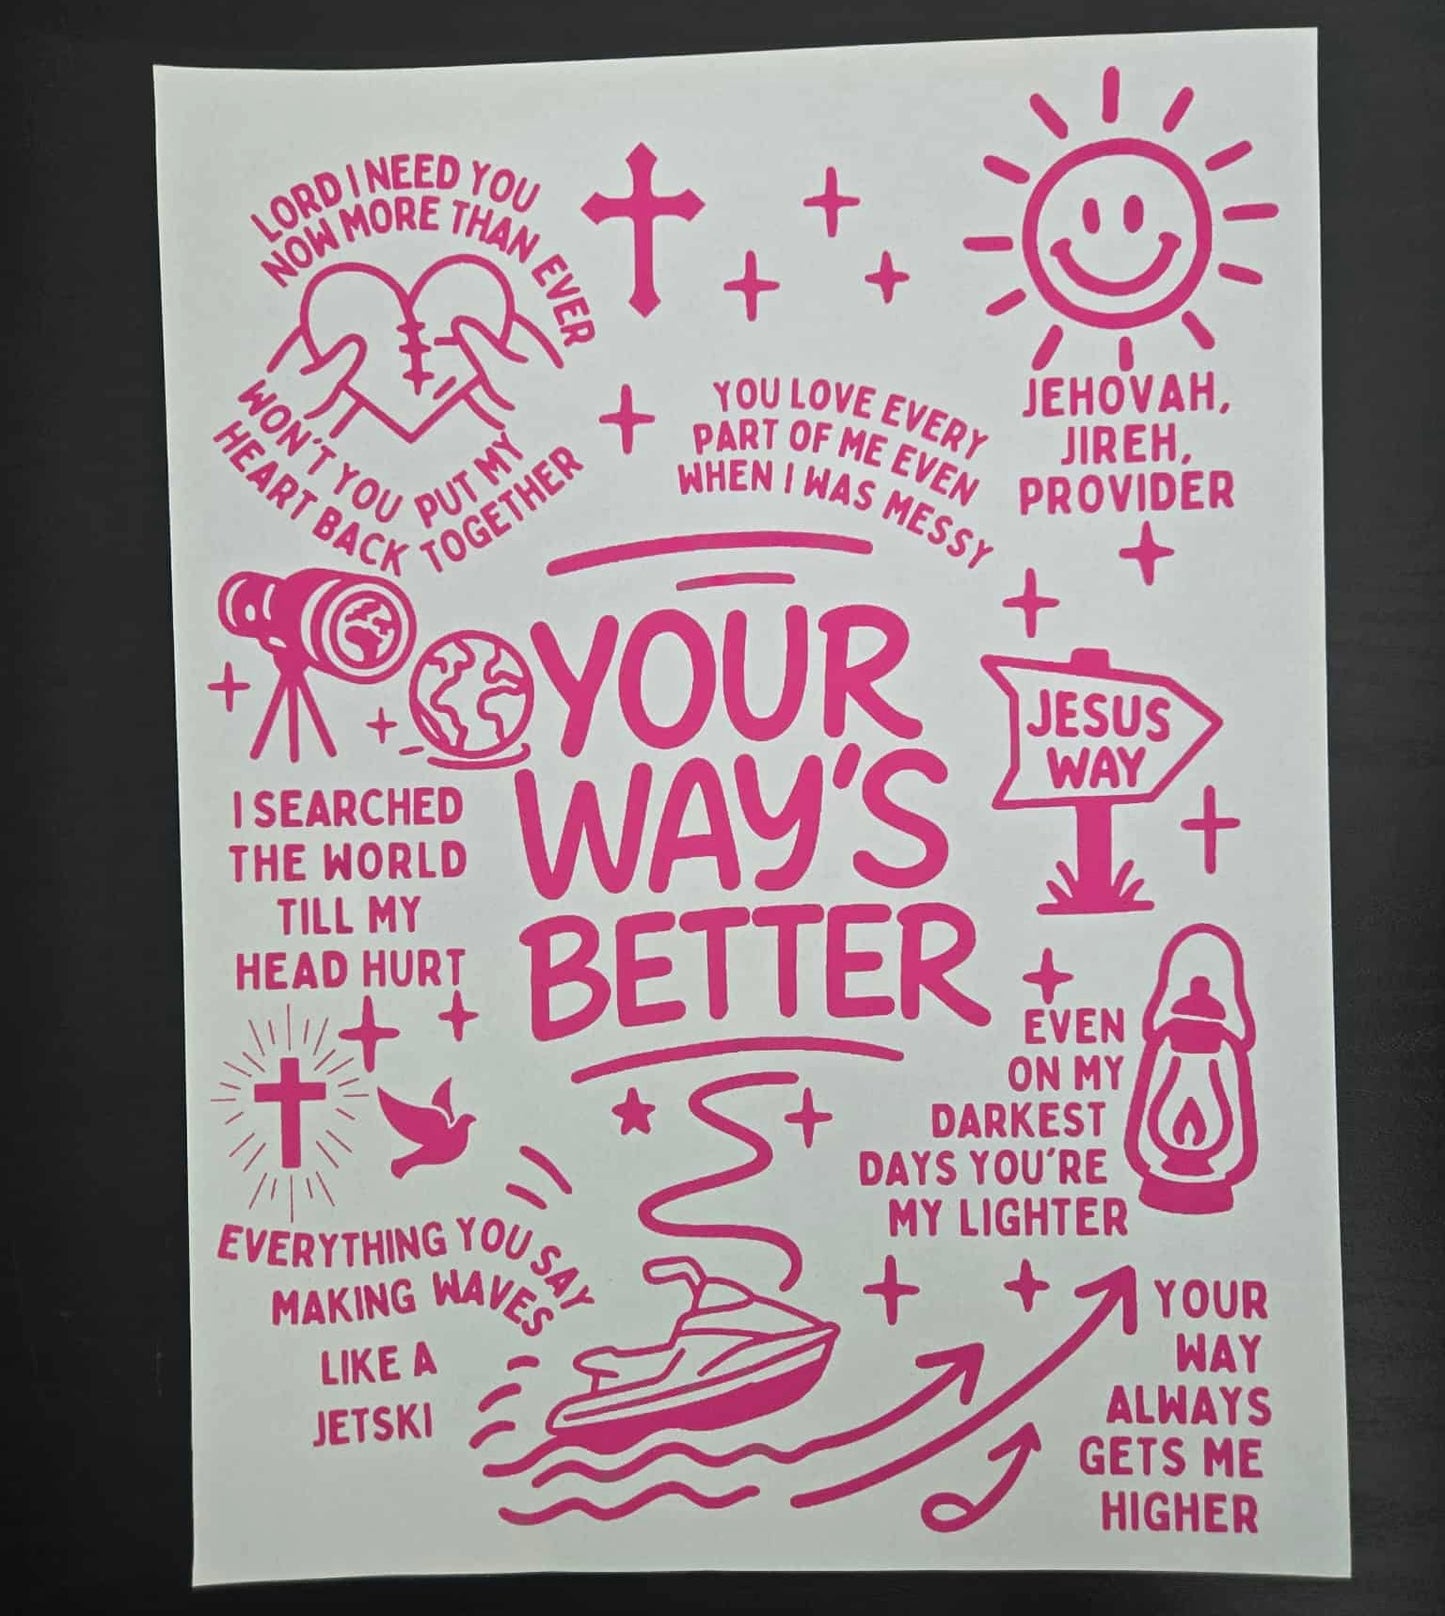 LORD I NEED YOU
NOW MORE THAN EVER
WON'T YOU PUT MY
HEART BACK TOGETHER
YOU LOVE EVERY
PART OF ME EVEN
WHEN I WAS MESSY
JEHOVAH,
JIREH,
PROVIDER
YOUR
WAY'S
BETTER
JESUS
WAY
I SEARCHED
THE WORLD
TILL MY
HEAD HURT
EVEN
ON MY
DARKEST
DAYS YOU'RE
MY LIGHTER
EVERYTHING YOU SAY
MAKING WAVES
LIKE A
JETSKI
YOUR
WAY
ALWAYS
GETS ME
HIGHER